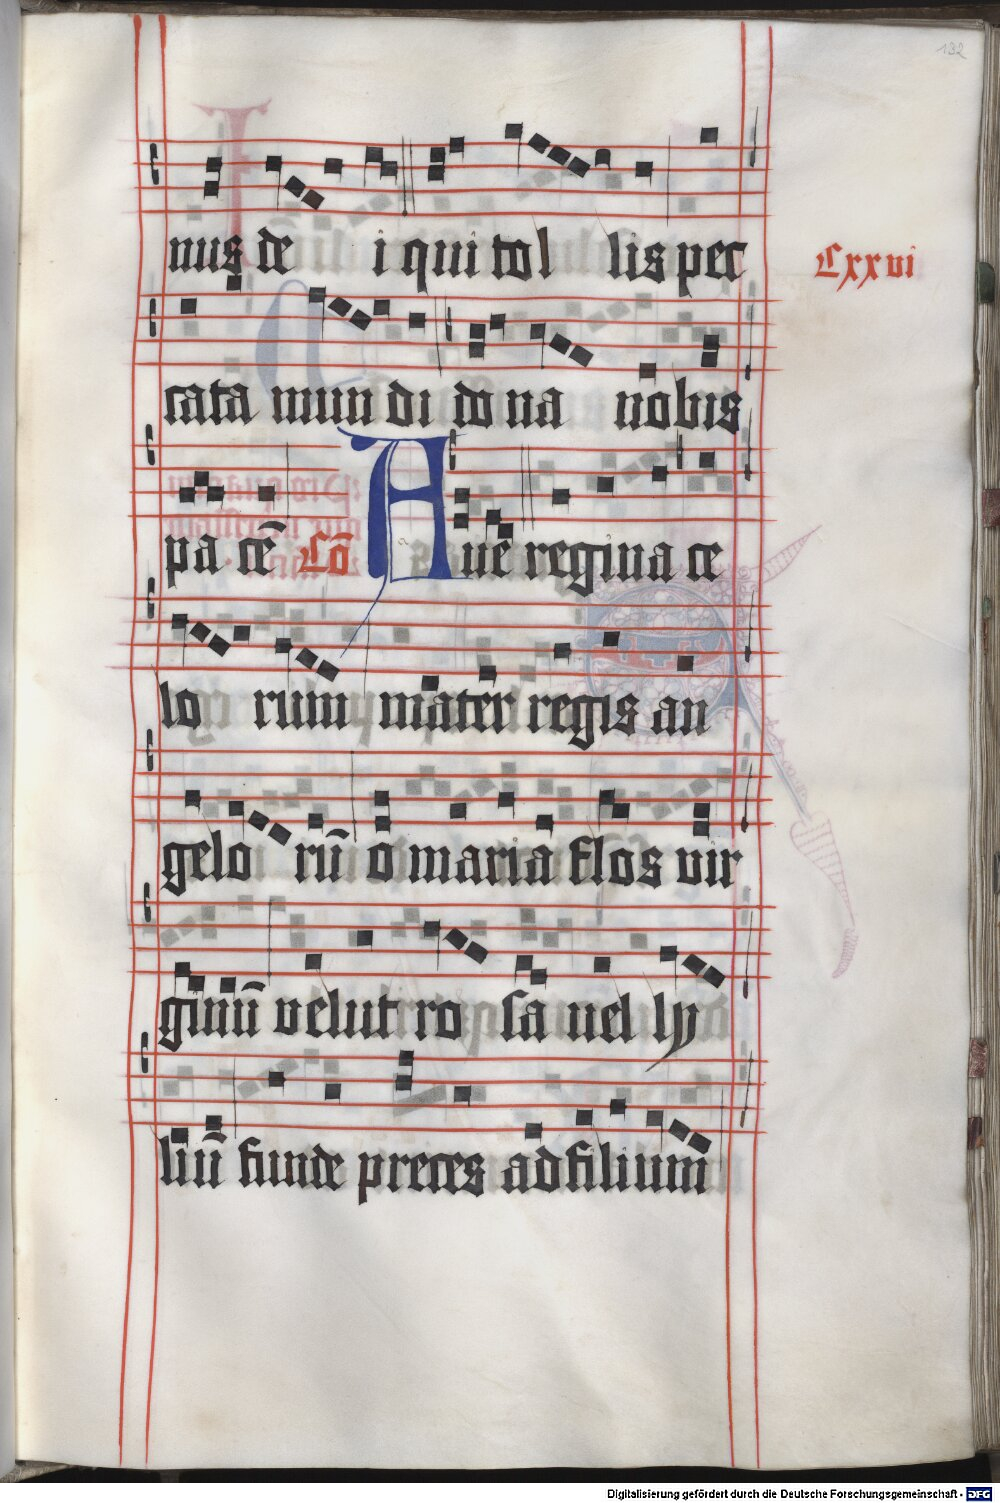 132
nus de i qui tol lis pec
Cxxvi
cata mun di do na nobis
pa cē Cō Aue regina ce
lo rum mater regis an
gelo rū o maria flos vir
ginū velut ro sa uel ly
liū funde preces ad filium
Digitalisierung gefördert durch die Deutsche Forschungsgemeinschaft - DFG